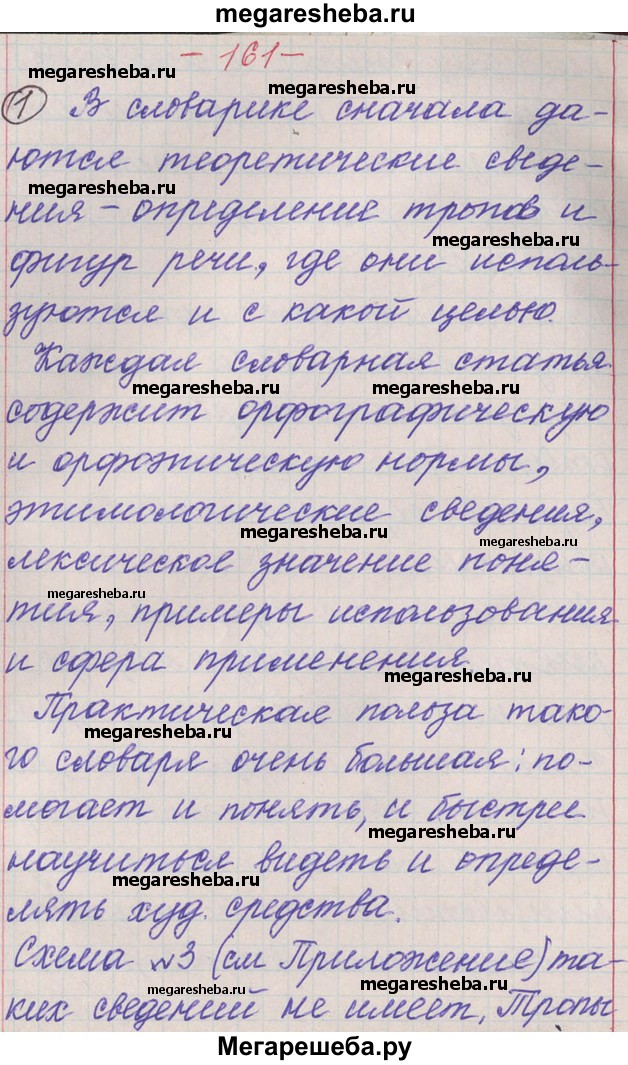 megaresheba.ru
- 161 -
megaresheba.ru megaresheba.ru
1 В словарике сначала да-
ются теоретические сведе-
megaresheba.ru
ния - определение тропов и
megaresheba.ru
фигур речи, где они исполь-
зуются и с какой целью.
Каждая словарная статья
megaresheba.ru megaresheba.ru
содержит орфографическую
и орфоэпическую нормы,
этимологические сведения,
megaresheba.ru megaresheba.ru
лексическое значение поня-
megaresheba.ru
тия, примеры использования
и сфера применения.
megaresheba.ru
Практическая польза тако-
megaresheba.ru
го словаря очень большая: по-
могает и понять, и быстрее
megaresheba.ru
научиться видеть и опреде-
megaresheba.ru
лять худ. средства.
Схема №3 (см Приложение) та-
megaresheba.ru
ких сведений не имеет. Тропы
Мегарешеба.ру